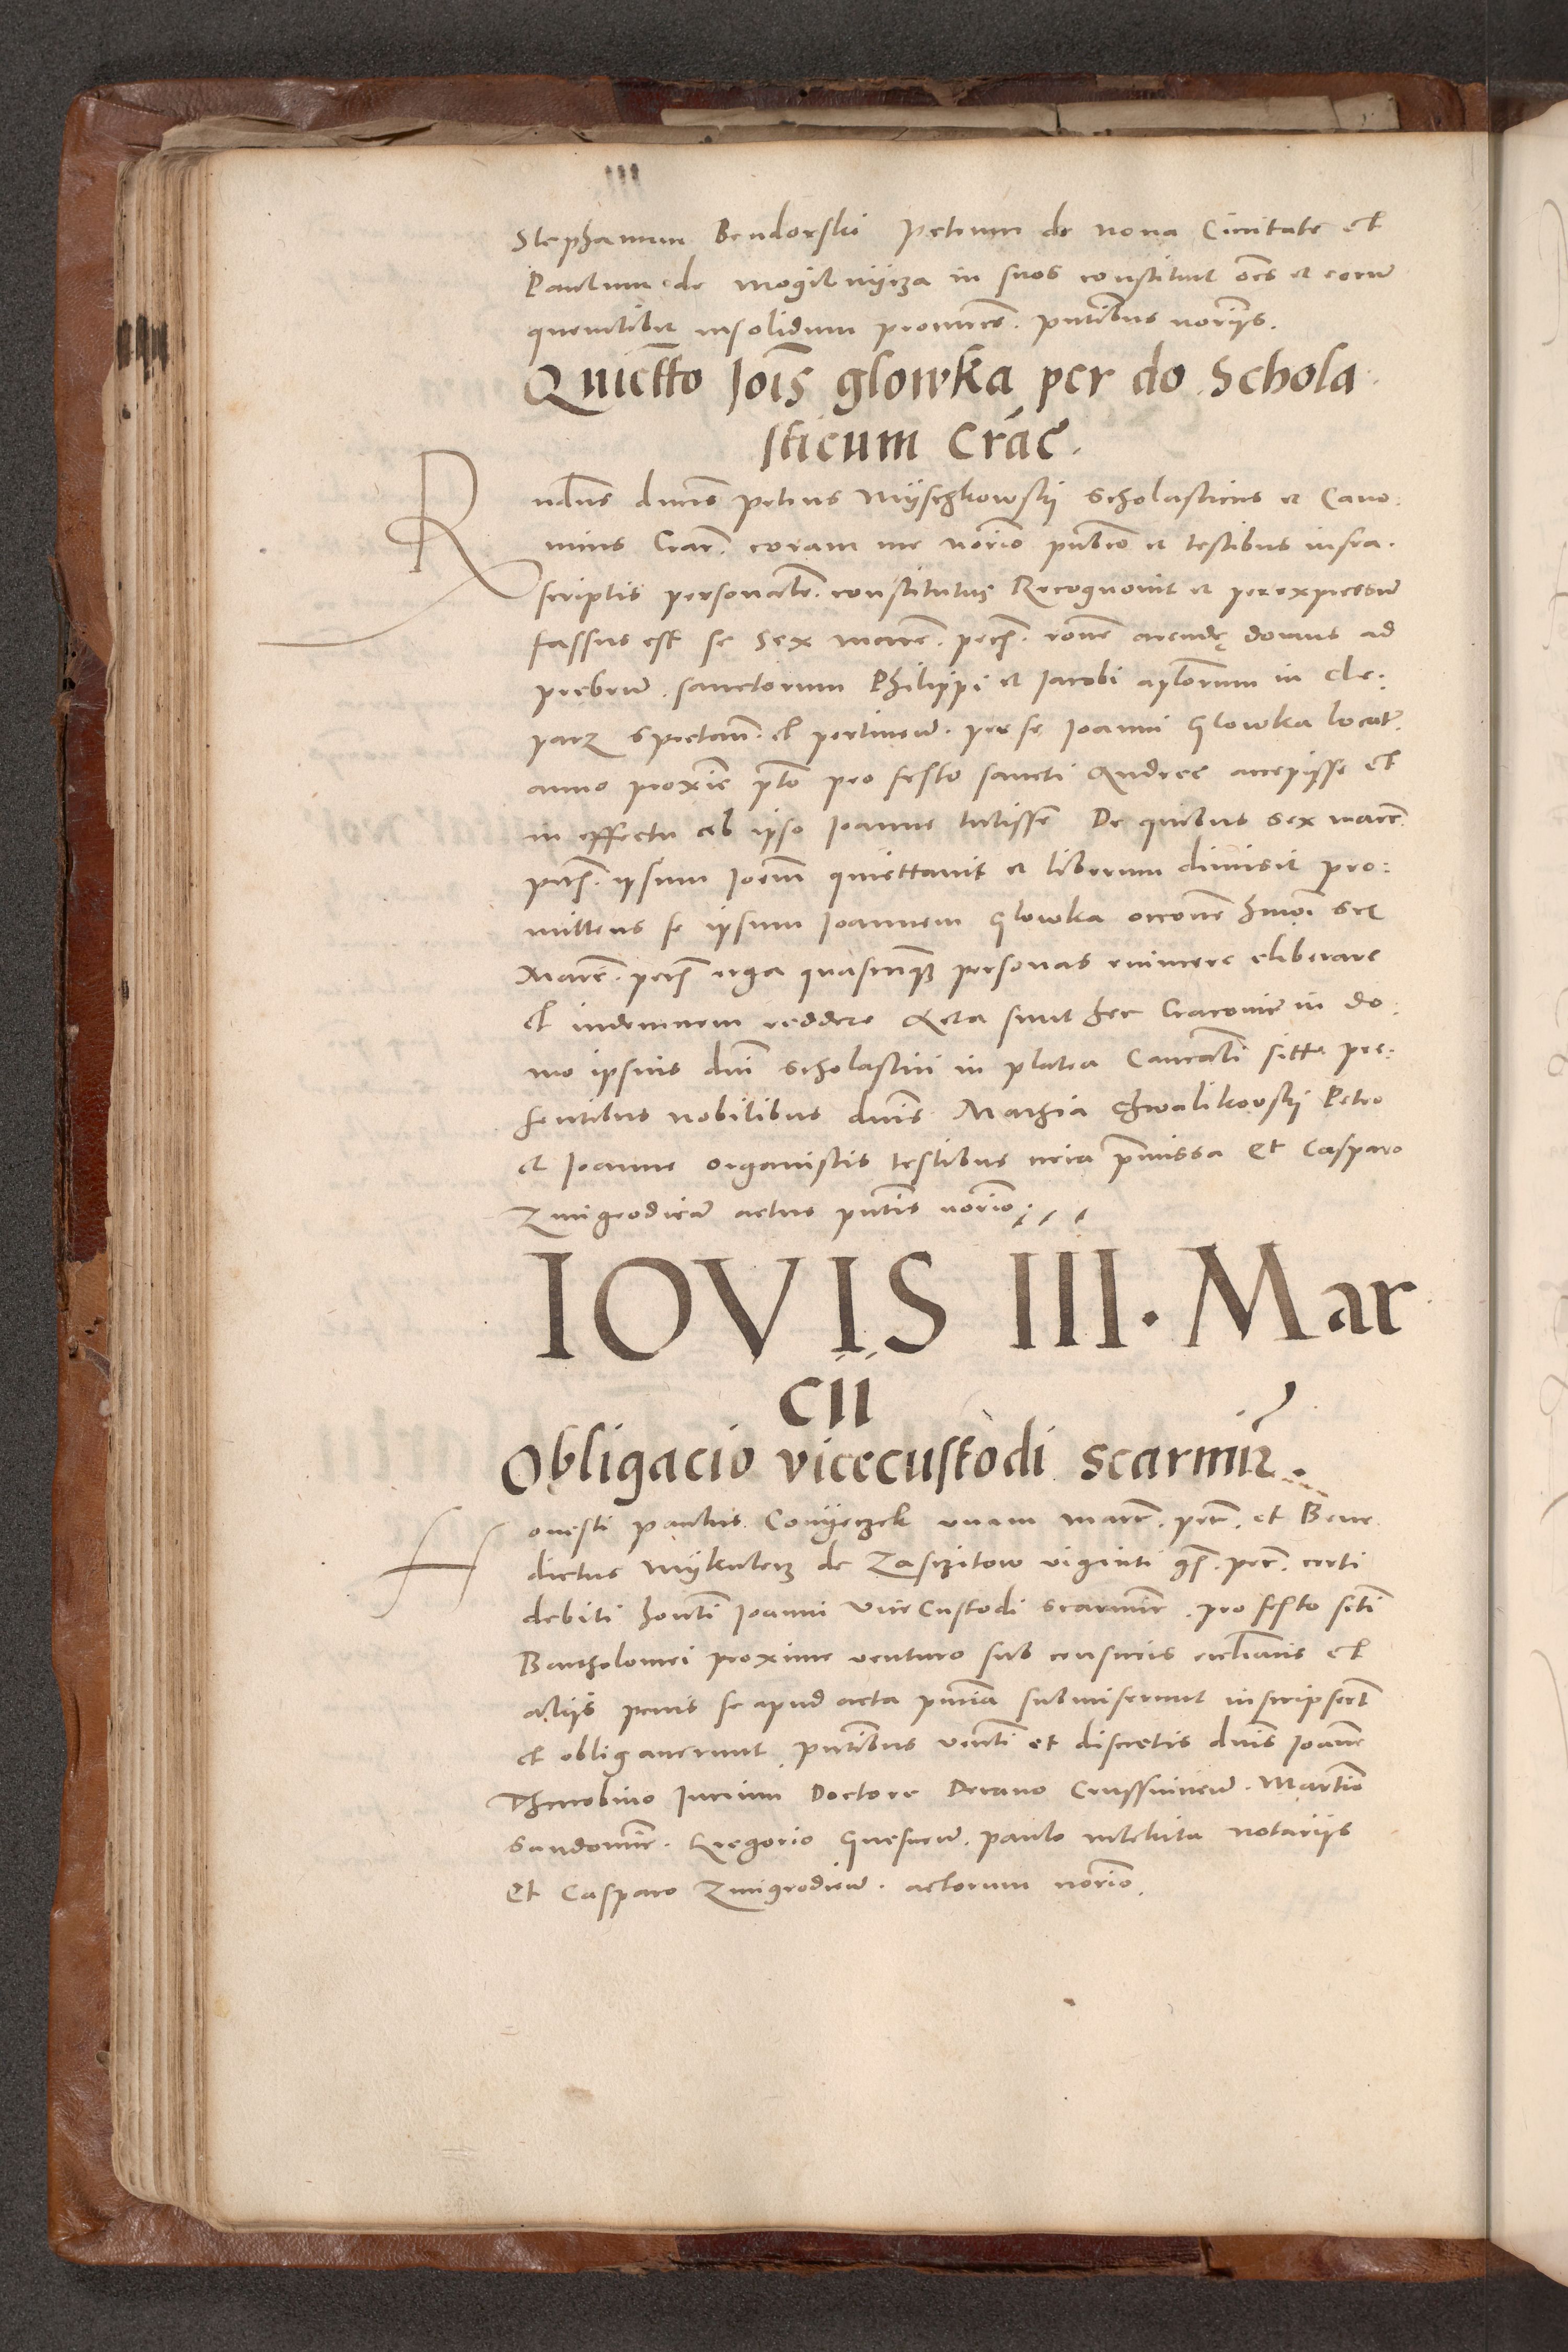 Stephanum Bendorski Petrum de Nova Civitate et
Paulum de Mogilnycza in suos constituit oēs et eorum
quemlibet insolidum procurēs. pntībus norījs.
Quiettō Joīs Glowka per do Schola
sticum Crac̄.
Rndūs dnūs Petrus Myschkowskj Scholasticus et Cano
nicus Crac̄. coram me norīo publīco et testibus infra.
scriptis personalr̄. constitutus Recognovit et per expressum
fassus est se Sex marc̄. pecs̄. rōne arendę domus ad
prebēn. sanctorum Philippi et Jacobi aplōrum in Cle:
parz spectan̄. et pertinen̄. per se Joanni Glowka locat̄.
anno proxīe ptō pro festo sancti Andree accepisse et
in effectu ab ipso Joanne tulisse De quibus sex marc̄
pecs̄. ipsum Joēm quiettavit et liberum dimisit pro:
mittens se ipsum Joannem Glowka occōne hmōi sex
Marc̄. pecs̄ erga quascunqʒ personas evincere eliberare
et indemnem reddere Acta sunt hec Cracovie in do
mo ipsius dnī Scholastici in platea Canicalī sitta pre:
sentibus nobilibus dnīs Mathia Chwalikowskj Petro
et Joanne organistis testibus circa prmīssa Et Casparo
Zmigrodicen̄ actus pntīs norīo
IOVIS III. Mar
CII
Obligacio vicecustodi Scarmir̄.
Honesti Paulus Conyeczek unam marc̄. pec̄. et Bene
dictus Mykulecz de Zasczitow viginti gs̄. pec̄. certi
debiti hontī Joanni Vice Custodi Scarmir̄. pro festo sctī
Bartholomei proxime venturo sub censuris ecclīasticis et
alijs penis se apud acta pntīa submiserunt inscripserūt
et obligaverunt pntībus venti et discretis dnīs Joanne
Jurium Doctore Decano Crussvicien̄. Martīo
Sandomir̄. Gregorio Gnesnen̄. Paulo notarijs
Et Casparo Zmigrodicen̄. actorum norīo